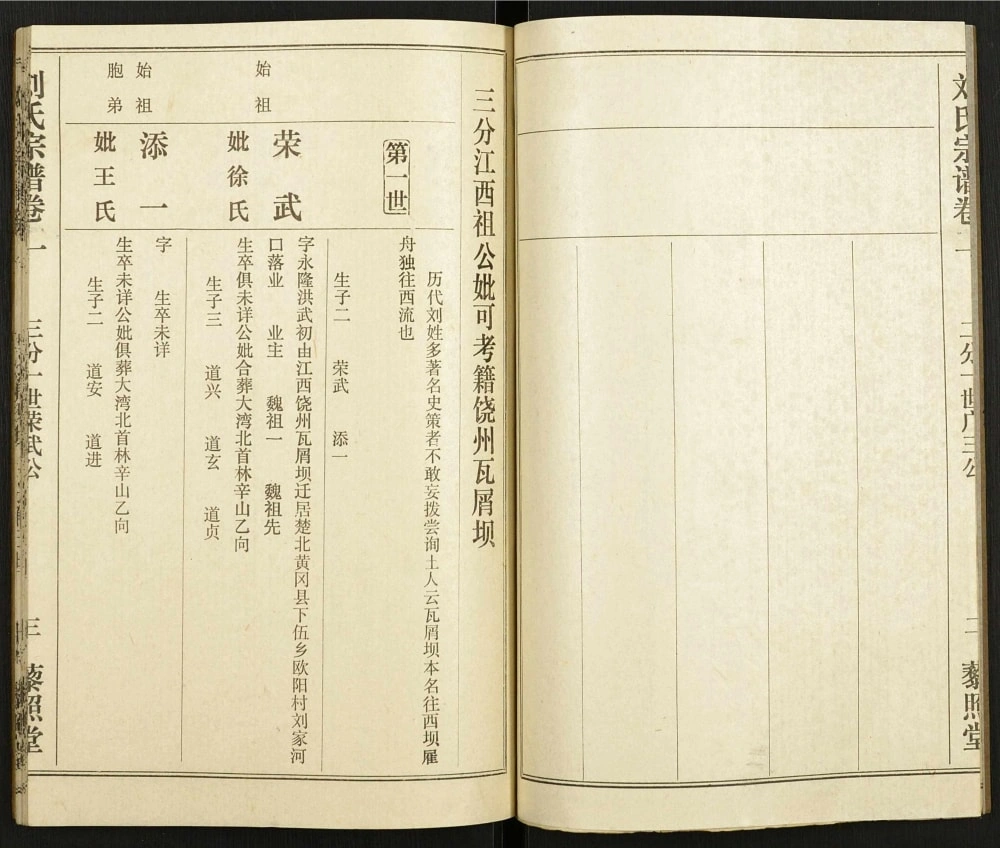 刘氏宗谱卷一
二分一世广三公
二
藜照堂
三分江西祖公妣可考籍饶州瓦屑坝
历代刘姓多著名史策者不敢妄拨尝询土人云瓦屑坝本名往西坝雇
舟独往西流也
第一世
生子二 荣武 添一
始祖
荣武
妣徐氏
字永隆洪武初由江西饶州瓦屑坝迁居楚北黄冈县下伍乡欧阳村刘家河
口落业 业主 魏祖一 魏祖先
生卒俱未详公妣合葬大湾北首林辛山乙向
生子三 道兴 道玄 道贞
始祖
胞弟
添一
妣王氏
字 生卒未详
生卒未详公妣俱葬大湾北首林辛山乙向
生子二 道安 道进
刘氏宗谱卷一
三分一世荣武公
三
藜照堂